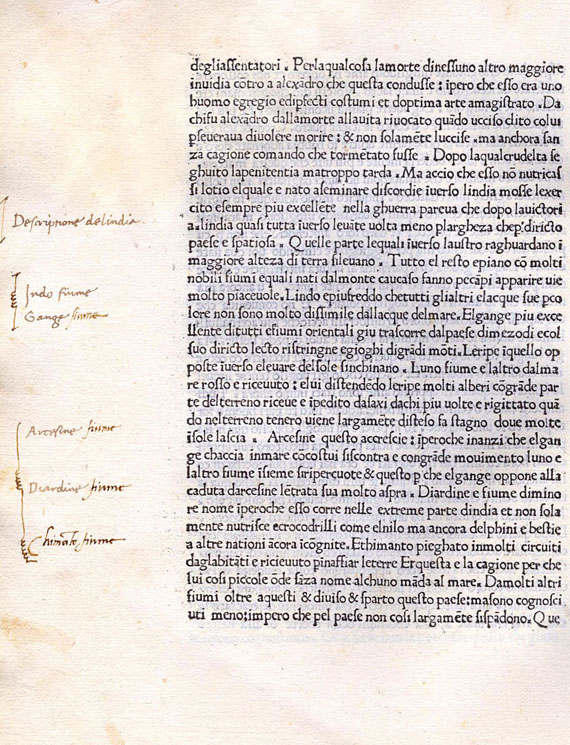 degliaſſentatori . Perlaqualcoſa lamorte dineſſuno altro maggiore
inuidia cõtro a alexãdro che queſta conduſſe : ĩpero che eſſo era uno
huomo egregio edipfecti coſtumi et doptima arte amagiſtrato . Da
chiſu alexãdro dallamorte allauita riuocato quãdo ucciſo clito colui
pſeueraua diuolere morire : & non ſolamẽte lucciſe . ma anchora ſan
za cagione comando che tormẽtato fuſſe . Dopo laqualcrudelta ſe
ghuito lapenitentia matroppo tarda . Ma accio che eſſo nõ nutricaſ
ſi lotio elquale e nato aſeminare diſcordie ĩuerſo lindia moſſe lexer
cito eſempre piu excellẽte nella ghuerra pareua che dopo lauictori
a . lindia quaſi tutta ĩuerſo leuãte uolta meno plargheza chep'diricto
paeſe e ſpatioſa . Quelle parte lequali ĩuerſo lauſtro raghuardano ĩ
maggiore alteza di terra ſileuano . Tutto el reſto epiano cõ molti
nobili fiumi equali nati dalmonte caucaſo fanno pcãpi apparire uie
molto piaceuole . Lindo epiufreddo chetutti glialtri elacque ſue pco
lore non ſono molto diſſimile dallacque delmare . Elgange piu exce
llente ditutti efiumi orientali giu traſcorre dalpaeſe dimezodi ecol
ſuo diricto lecto riſtringne egioghi digrãdi mõti . Leripe ĩquello op
poſte ĩuerſo eleuare delſole ſinchinano . Luno fiume e laltro dalma
re roſſo e riceuuto : elui diſtendedo leripe molti alberi cõgrãde par
te delterreno riceue e ĩpedito daſaxi dachi piu uolte e rigittato quã
do nelterreno tenero uiene largamẽte diſteſo fa ſtagno doue molte
ĩſole laſcia . Arceſine queſto accreſcie : ĩperoche inanzi che elgan
ge chaccia inmare cocoſtui ſiſcontra e congrãde mouimento luno e
laltro fiume ĩſieme ſiripercuote & queſto p che elgange oppone alla
caduta darceſine lẽtrata ſua molto aſpra . Diardine e fiume dimino
re nome ĩperoche eſſo corre nelle extreme parte dindia et non ſola
mente nutriſce ecrocodrilli come elnilo ma ancora delphini e beſtie
a altre nationi ãcora ĩcõgnite . Ethimanto pieghato inmolti circuiti
daglabitãti e ricieuuto pinaffiar leterre Erqueſta e la cagione per che
lui coſi piccole õde ſãza nome alchuno mãda al mare . Damolti altri
fiumi oltre aqueſti & diuiſo & ſparto queſto paeſe : maſono cognoſci
uti meno : impero che pel paeſe non coſi largamẽte ſiſpãdono . Que
Descriptione delindia
Indo fiume
Gange fiume
Arcesine fiume
Diardine fiume
fiume